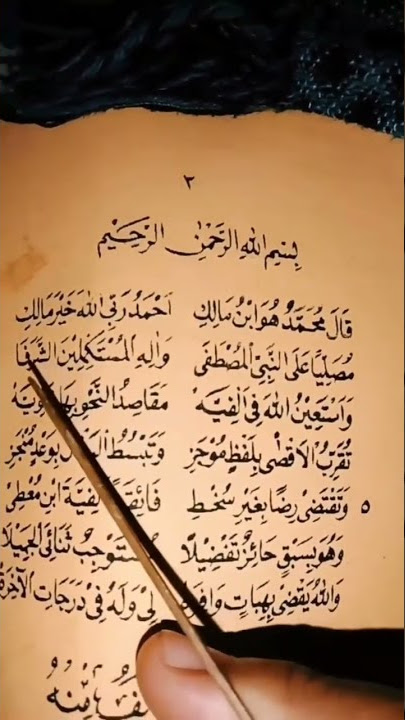 ٢
بِسْمِ اللهِ الرَّحْمٰنِ الرَّحِيْمِ
قَالَ مُحَمَّدٌ هُوَ ابْنُ مَالِكِ اَحْمَدُ رَبِّى اللهَ خَيْرَ مَالِكِ
مُصَلِّيًا عَلَى النَّبِىِّ الْمُصْطَفَى وَاٰلِهِ الْمُسْتَكْمِلِيْنَ الشَّرَفَا
وَاَسْتَعِيْنُ اللهَ فِى اَلْفِيَّه مَقَاصِدُ النَّحْوِ بِهَا
تُقَرِّبُ الْاَقْصٰى بِلَفْظٍ مُوْجَزِ وَتَبْسُطُ بِوَعْدٍ مُنْجَزِ
٥ وَتَقْتَضِىْ رِضًا بِغَيْرِ سُخْطِ ابْنِ مُعْطِى
وَهُوَ بِسَبْقٍ حَائِزٌ تَفْضِيْلًا ثَنَائِىَ الْجَمِيْلَا
وَاللهُ يَقْضِىْ بِهِبَاتٍ لِىْ وَلَهُ فِىْ دَرَجَاتِ الْآخِرَة
مِنْهُ